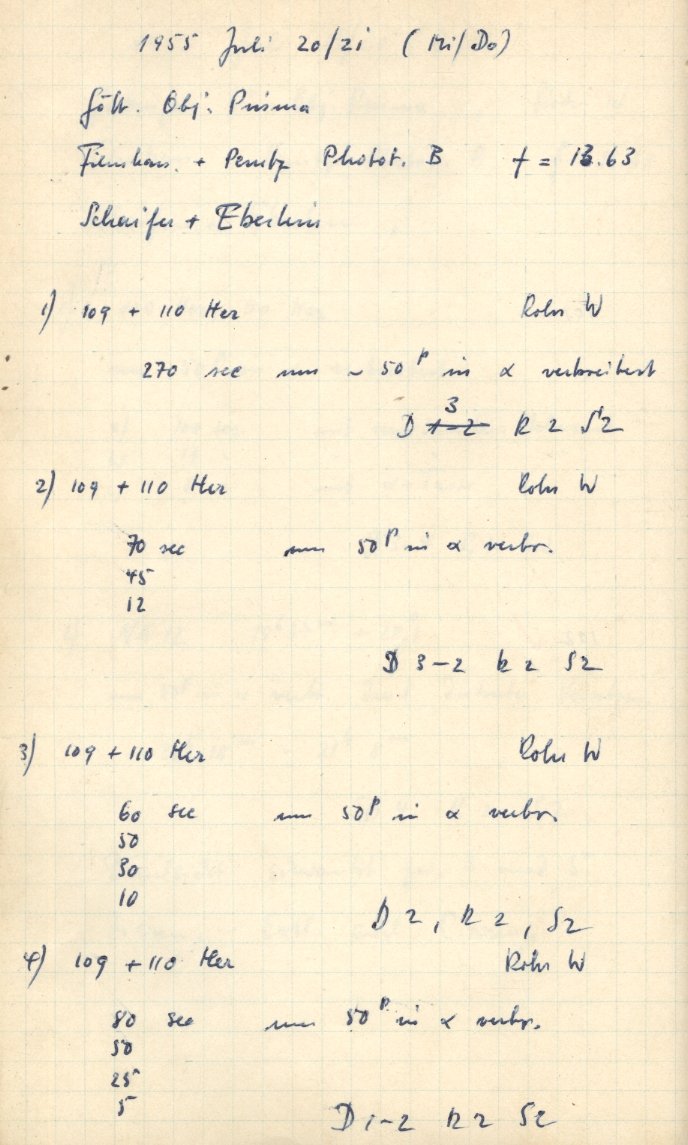 1955 Juli 20/21 (Mi/Do)
Gött. Obj. Prisma
+ Photot. B f = 13.63
Schaifer + Eberlein
1) 109 + 110 Her Rohr W
270 sec um ~ 50ᵖ in α verbreitert
D 1-2 3 R 2 S 2
2) 109 + 110 Her Rohr W
70 sec um 50ᵖ in α verbr.
45
12
D 3-2 R 2 S 2
3) 109 + 110 Her Rohr W
60 sec um 50ᵖ in α verbr.
50
30
10
D 2, R 2, S 2
4) 109 + 110 Her Rohr W
80 sec um 50ᵖ in α verbr.
50
25
5
D 1-2 R 2 S 2